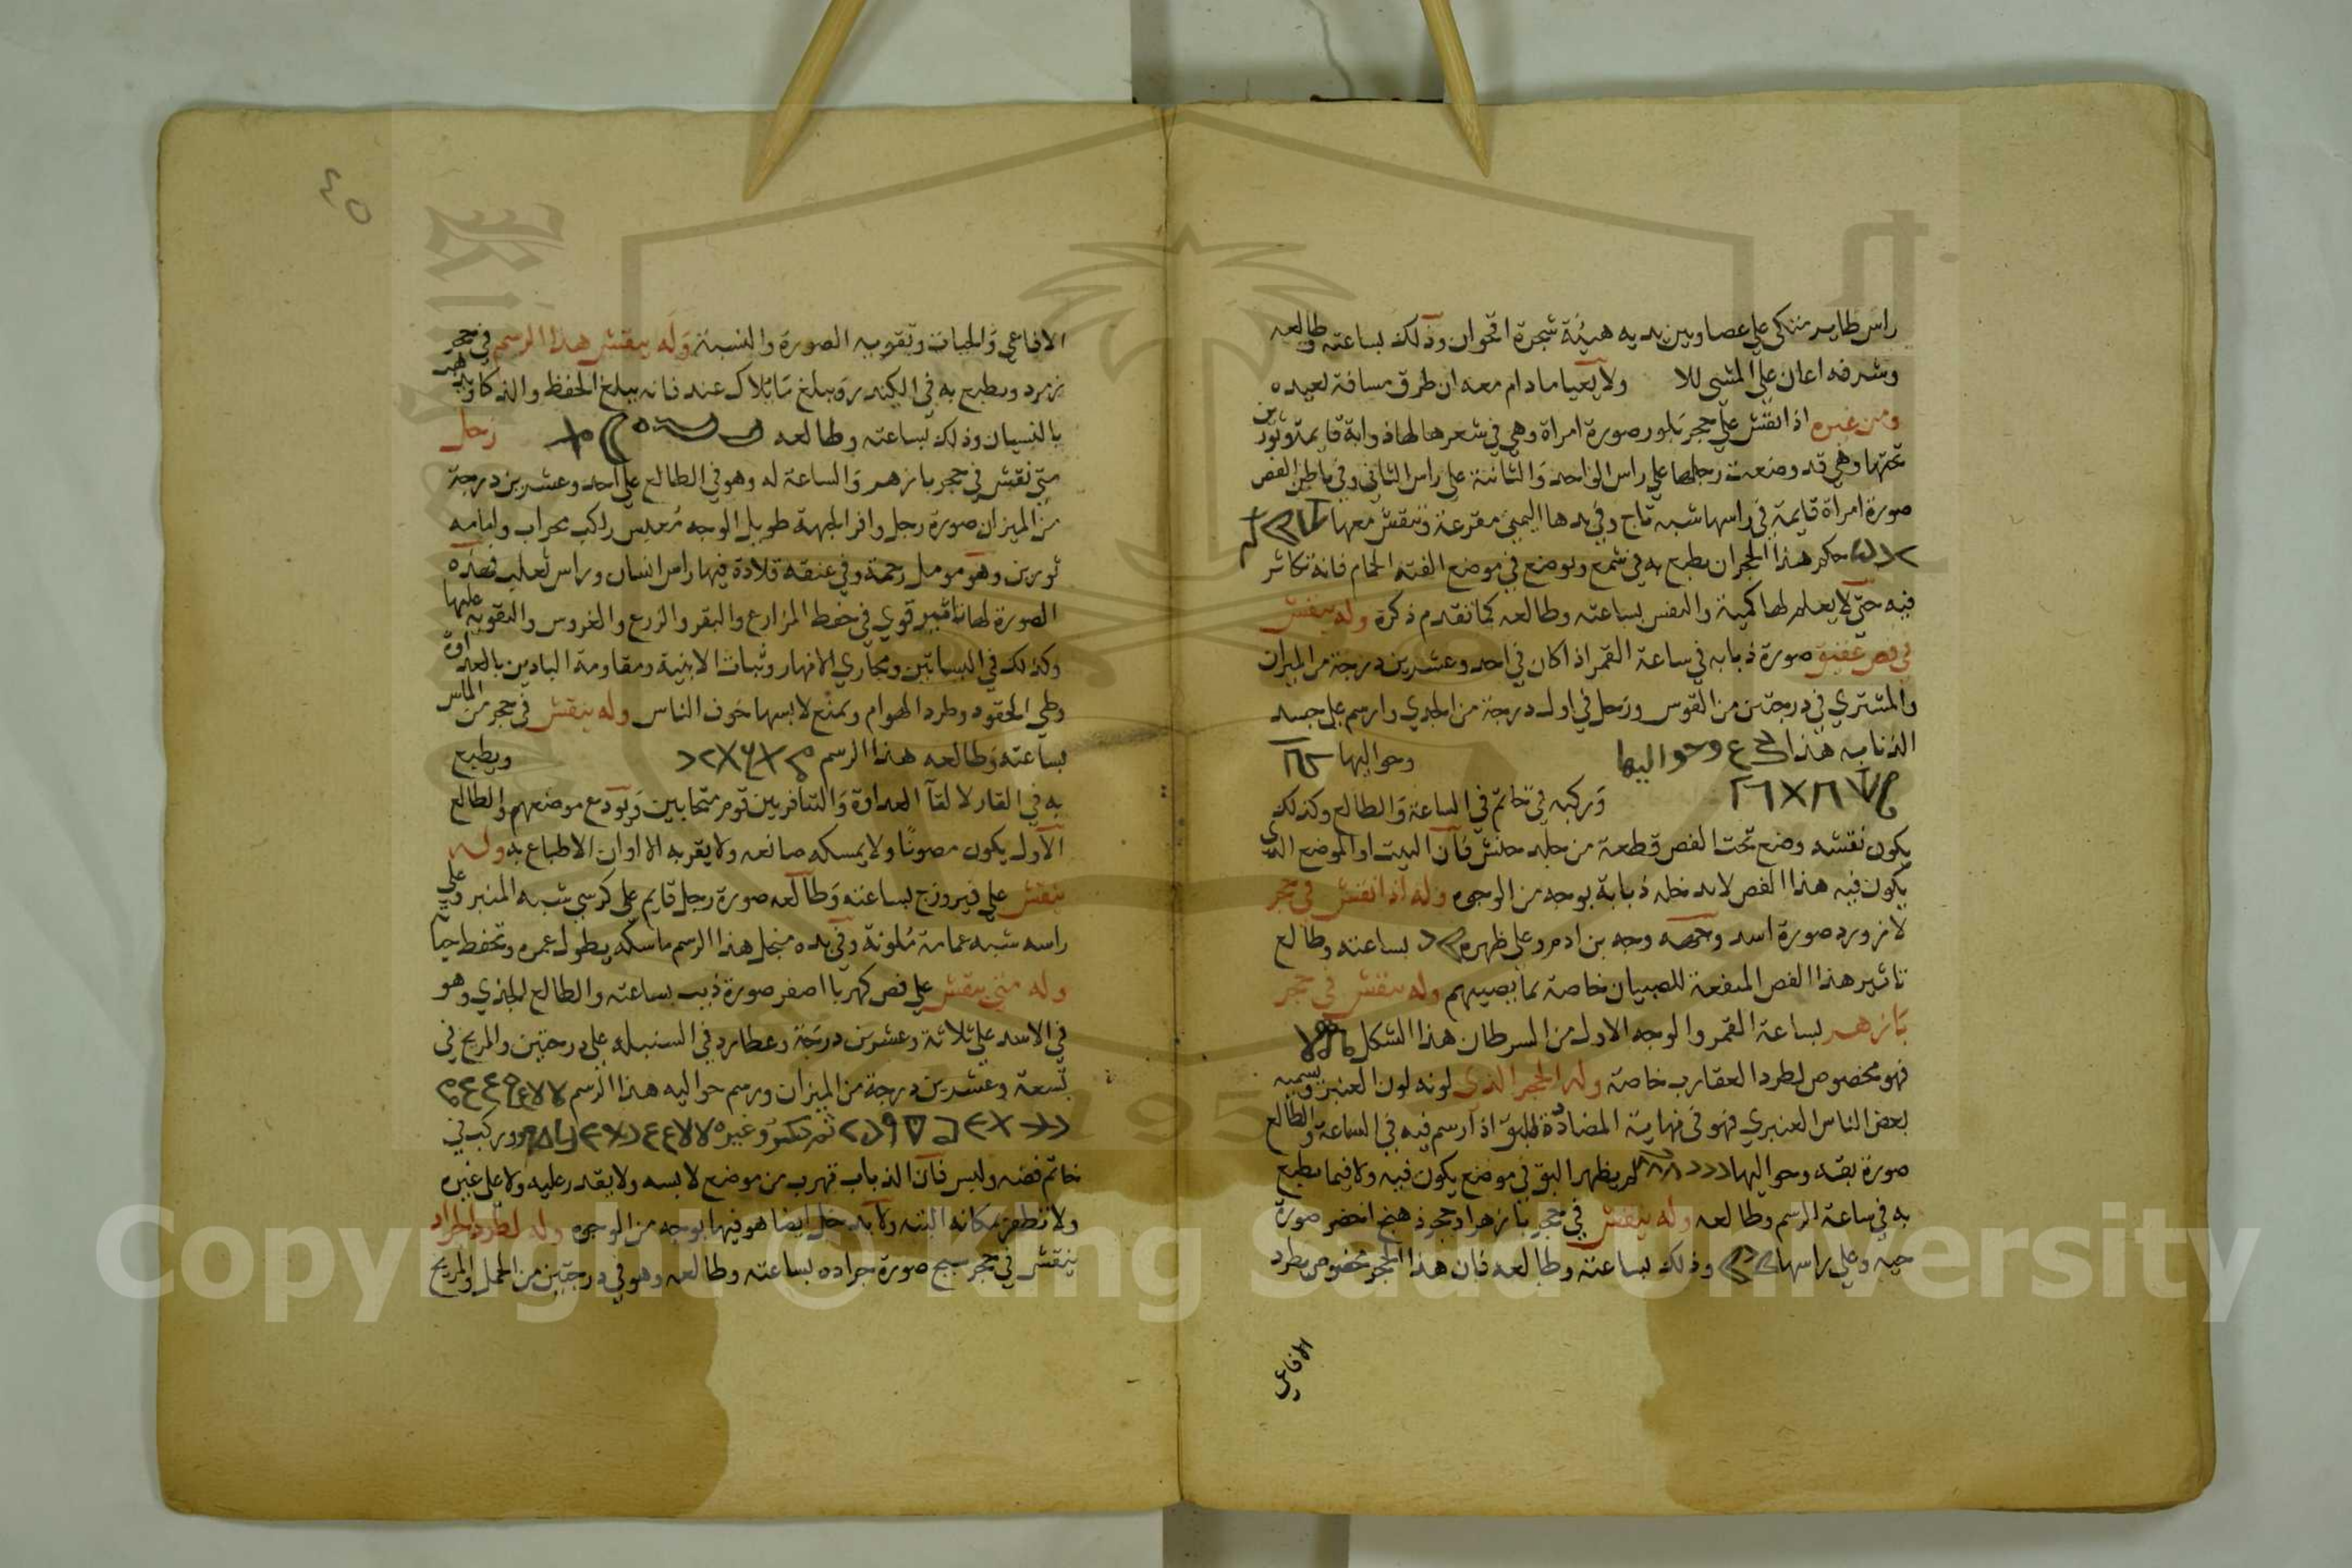 راس طاير متكي علي عصا وبين يديه هيئة شجرة اقحوان وذلك بساعته وطالعه
وشرفه اعان علي المشي للا ولا يعيا مادام معه ان طرق مسافة لعيده
ومن غيره اذا نقش علي حجر بلور صورة امراة وهي في شعرها لهاذ وابة قايمة وثورين
تحتها وهي قد وضعت رجلها علي راس الواحد والثانية علي راس الثاني وفي باطن الفص
صورة امراة قايمة في راسها شبه تاج وفي يدها اليمني مقرعة وتنقش معها
حكم هذا الحجر ان يطبع به في شمع ويوضع في موضع الفته الحمام فانه تكاثر
فيه حتي لا يعلم لها كمية والنفس بساعته وطالعه كما تقدم ذكرة وله ينقش
في فص عقيق صورة ذبابه في ساعة القمر اذا كان في احد وعشرين درجة من الميزان
والمشتري في درجتين من القوس وزحل في اول درجة من الجدي وارسم علي جسد
الذبابه هذا وحواليها وحواليها
وركبه في خاتم في الساعة والطالع وكذلك
يكون نقشه وضع تحت الفص قطعة من جلد حنش فان البيت او الموضع الذي
يكون فيه هذا الفص لا يدخله ذبابة بوجه من الوجوه وله اذا نقش في حجر
لازورد صورة اسد ووجهه وجه بن ادم وعلي ظهره بساعته وطالع
تاثير هذا الفص المنفعة للصبيان خاصة بما يصيبهم وله ينقش في حجر
بازهر بساعة القمر والوجه الاول من السرطان هذا الشكل
فهو مخصوص لطرد العقارب خاصة وله الحجر الذي لونه لون العنبر ويسميه
بعض الناس العنبري فهو في نهاية المضادة للبق اذا رسم فيه في الساعة والطالع
صورة بقه وحواليها لم يظهر البق في موضع يكون فيه ولا فيما يطبع
به في ساعة الرسم وطالعه وله ينقش في حجر بازهر او حجر ذهنج اخضر صورة
حيه وعلي راسها وذلك بساعته وطالعه فان هذا الحجر مخصوص بطرد
الافاعي
٤٥
الافاعي والحيات وتقويه الصورة والنسبة وله ينقش هذا الرسم في حجر
زمرد ويطبع به في الكندر ويبلغ فانه يبلغ الحفظ والذكا ويذهب
بالنسيان وذلك بساعته وطالعه زحل
متي نقش في حجر بازهر والساعة له وهو في الطالع علي احد وعشرين درجة
من الميزان صورة رجل وافر الجبهة طويل الوجه معبس راكب محراب وامامه
ثورين وهو وفي عنقه قلادة فيها راس انسان وراس ثعلب فهذه
الصورة لها تاثير قوي في حفظ المزارع والبقر والزرع والغروس والتقويه عليها
وكذلك في البساتين ومجاري الانهار وثبات الابنية ومقاومة البادين بالعداوة
وطي الحقود وطرد الهوام ويمنع لابسها خوف الناس وله ينقش في حجر من الماس
بساعته وطالعه هذا الرسم ويطبع
به في القار لالقآ العداوة والتنافر بين قوم متحابين ويودع موضعهم والطالع
الاول يكون مصونًا ولا يمسكه صانعه ولا يقربه الا اوان الاطباع به وله
ينقش علي فيروزج بساعته وطالعه صورة رجل قايم علي كرسي شبه المنبر وعلي
راسه شبه عمامة ملونة وفي يده منجل هذا الرسم ماسكه يطول عمره وتحفط حياته
وله متي ينقش علي فص كهربا اصفر صورة ذيب بساعته والطالع الجدي وهو
في الاسد علي ثلاثة وعشرين درجة وعطارد في السنبله علي درجتين والمريخ في
تسعة وعشرين درجة من الميزان ورسم حواليه هذا الرسم
وغيره ويركب في
خاتم فضه ولبس فان الذباب تهرب من موضع لابسه ولا يقدر عليه ولا علي غيره
ولا تظهر بمكانه البته ولا يدخل ايضا هو فيها بوجه من الوجوه وله لطرد الجراد
ينقش في حجر سبج صورة جراده بساعته وطالعه وهو في درجتين من الحمل والمريخ
Copyright © King Saud University
195